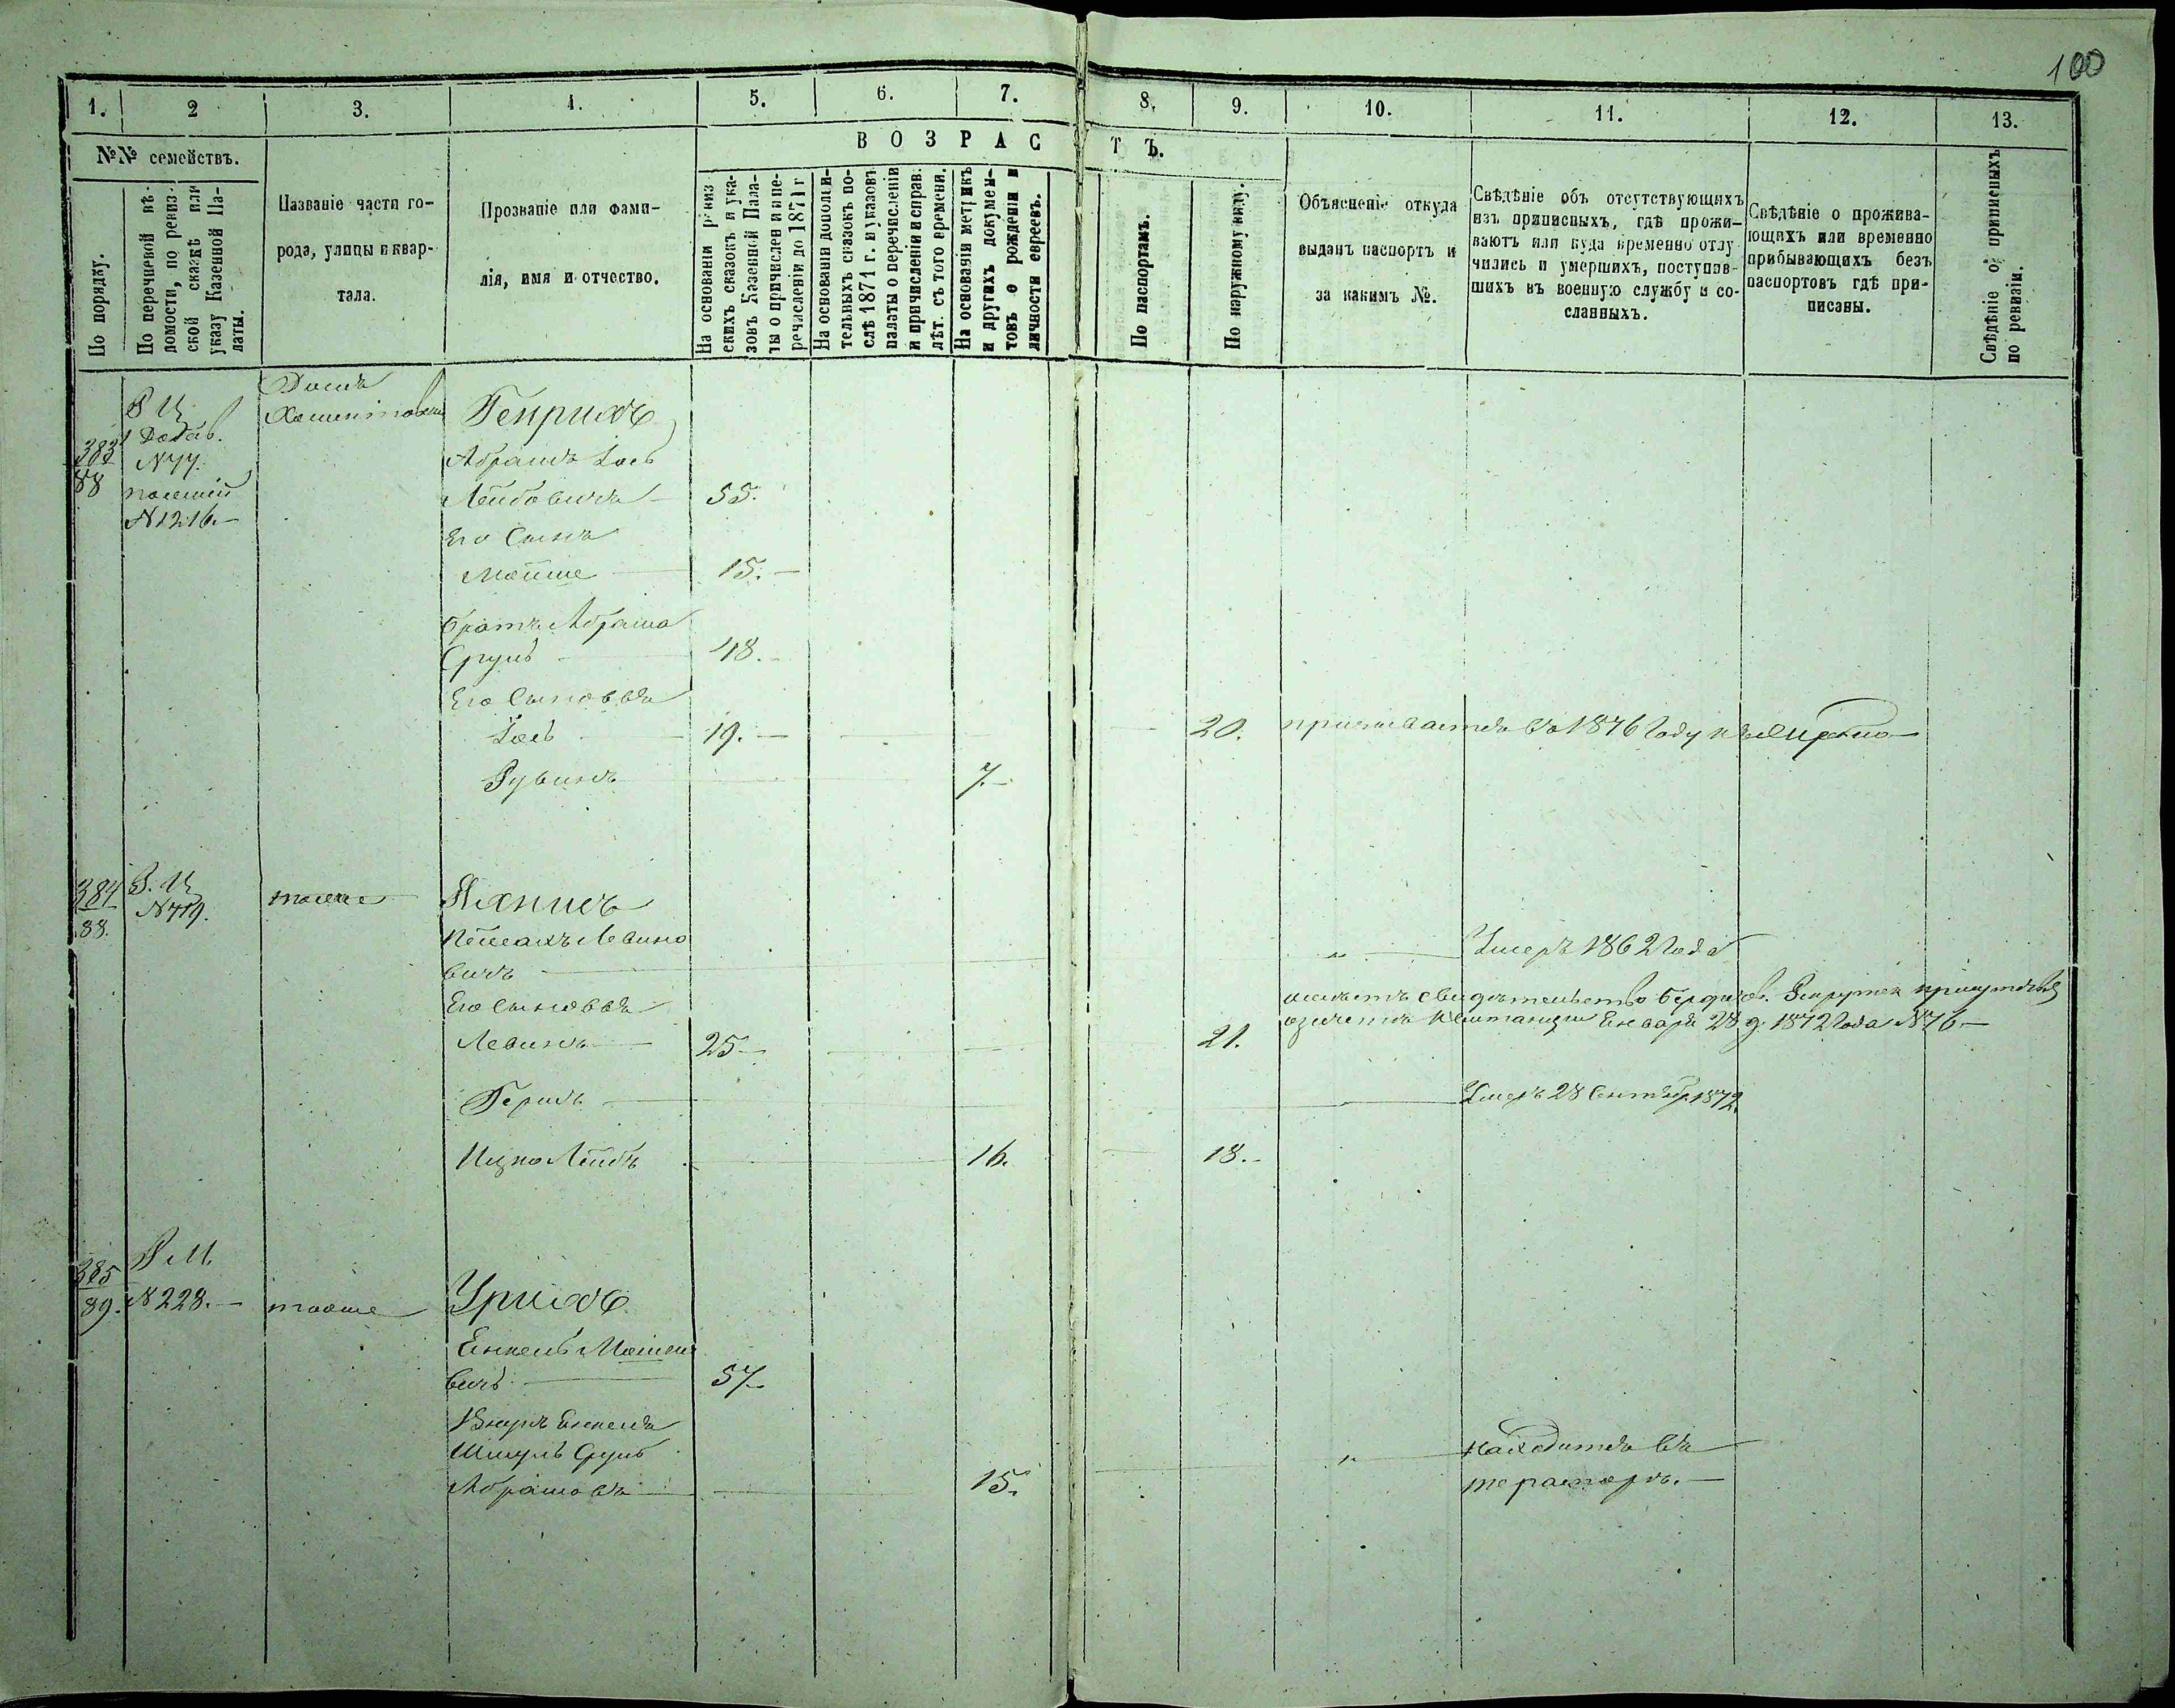 100
1. 2 3. 4. 5. 6. 7. 8. 9. 10. 11. 12. 13.
№№ семействъ.
По порядку.
По перечневой вѣ-
домости, по ревиз-
ской сказкѣ или
указу Казенной Па-
латы.
Названіе части го-
рода, улицы и квар-
тала.
Прозваніе или фами-
лія, имя и отчество.
ВОЗРАСТЪ.
На основаніи ревиз
скихъ сказокъ и ука-
зовъ Казенной Пала-
ты о причислен и пе-
речислені до 1871 г
На основаніи дополни-
тельныхъ сказокъ по-
слѣ 1871 г. и указовъ
палаты о перечисленіи
и причисленіи и справ.
лѣт. съ того времени.
На основаніи метрикъ
и другихъ докумен-
товъ о рожденіи и
личности евреевъ.
По паспортамъ.
По наружному виду.
Объясненіе откуда
выданъ паспортъ и
за какимъ №.
Свѣдѣніе объ отсутствующихъ
изъ приписныхъ, гдѣ прожи-
ваютъ или куда временно отлу-
чились и умершихъ, поступив-
шихъ въ военную службу и со-
сланныхъ.
Свѣдѣніе о прожива-
ющихъ или временно
прибывающихъ безъ
паспортовъ гдѣ при-
писаны.
Свѣдѣніе о приписныхъ
по ревизіи.
383
88
Р. Ц.
Добав.
N 77.
N 1216.
Генрихъ
Абрамъ Іось
Лейбовичъ 55.
Его Сынъ
Мойше 15.
братъ Абрама
Сруль 48.
Его Сыновья
Іось 19. 20. въ 1876 Году
Рувинъ 7.
384
88.
Р. Ц
N 719.
тоже
Яхнисъ
Пейсахъ Левино
вичъ Умеръ 1862 Года
Его Сыновья
Левинъ 25 21.
имѣетъ свидѣтельство Бердичов.
квитанции Января 28 д. 1872 Года N 76
Гершъ Умеръ 28 Сентябр. 1872.
Ицко Лейбъ 16. 18.
385
89.
Р. М.
N 228.
тоже
Урихъ
Енкель Мошко
вичъ 57
Внукъ Енкеля
Шмуль Сруль
Абрамовъ 15.
находится въ